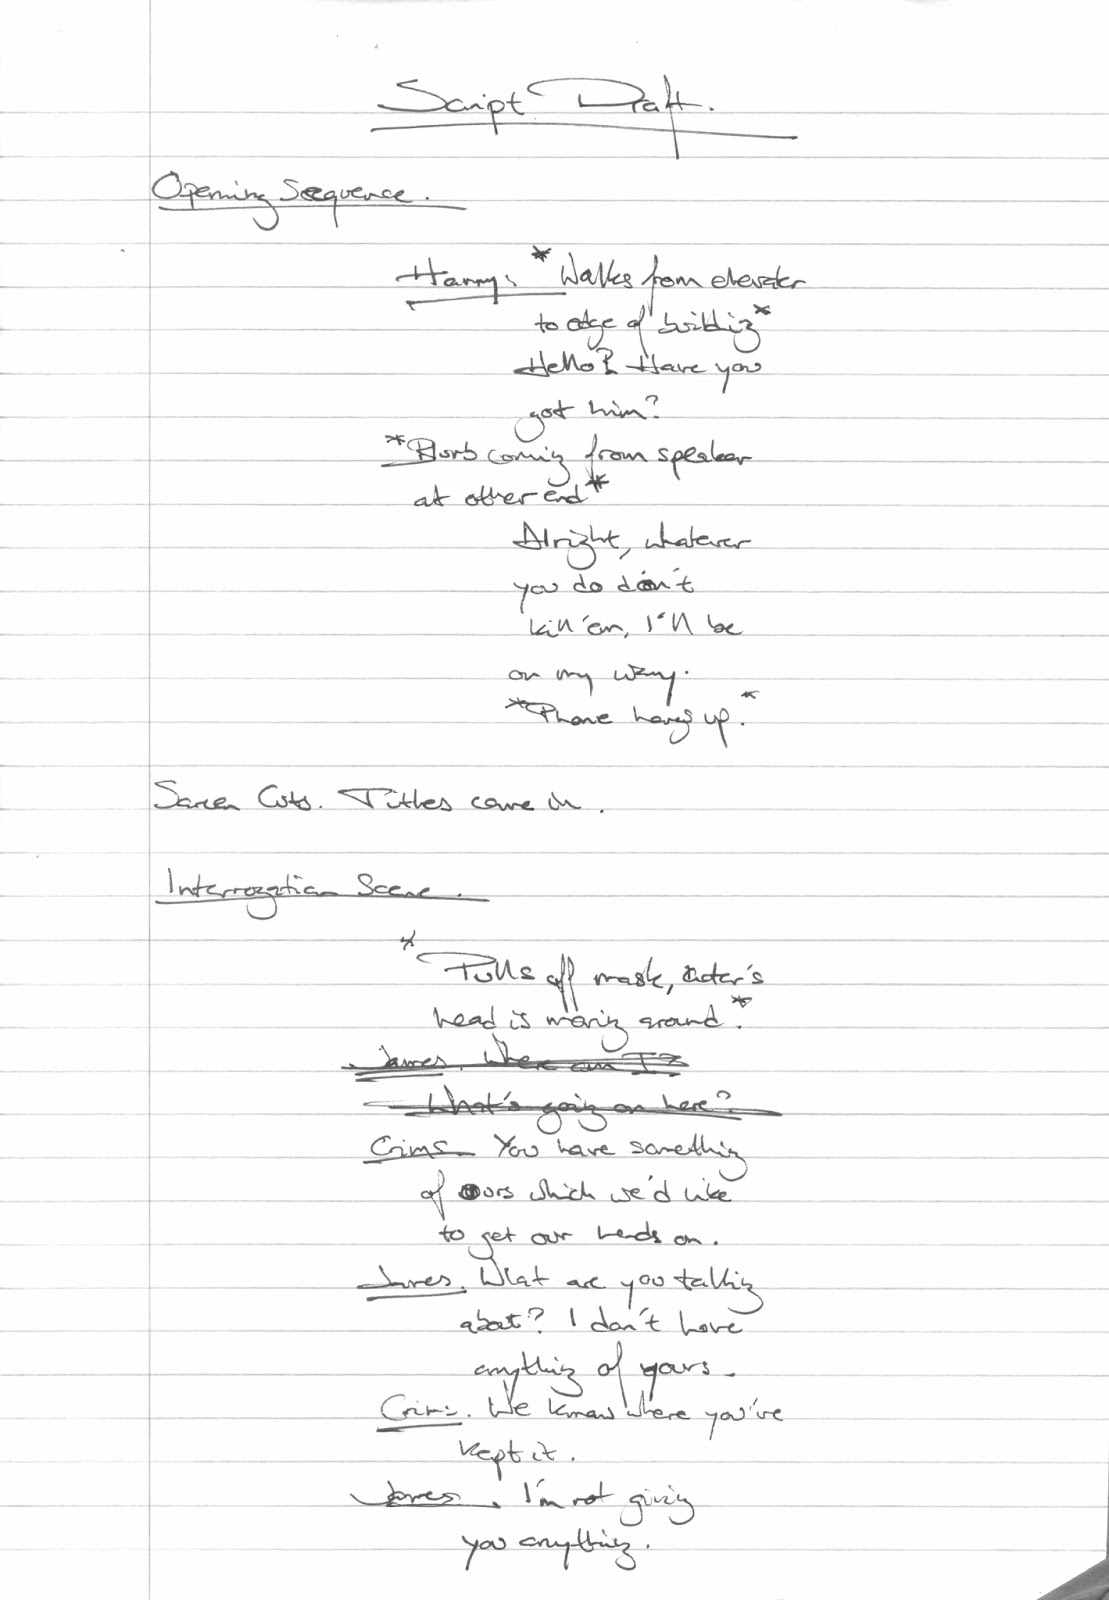 Script Draft.
Opening Sequence.
Harry: *Walks from elevator
to edge of building*
Hello? Have you
got him?
*Blurb coming from speaker
at other end*
Alright, whatever
you do don't
kill 'em, I'll be
on my way.
*Phone hangs up.*
Screen Cuts. Titles come in.
Interrogation Scene.
*Pulls off mask, actor's
head is moving around.*
James. Where am I?
What's going on here?
Crims. You have something
of ours which we'd like
to get our hands on.
James. What are you talking
about? I don't have
anything of yours.
Crims. We know where you've
kept it.
James. I'm not giving
you anything.